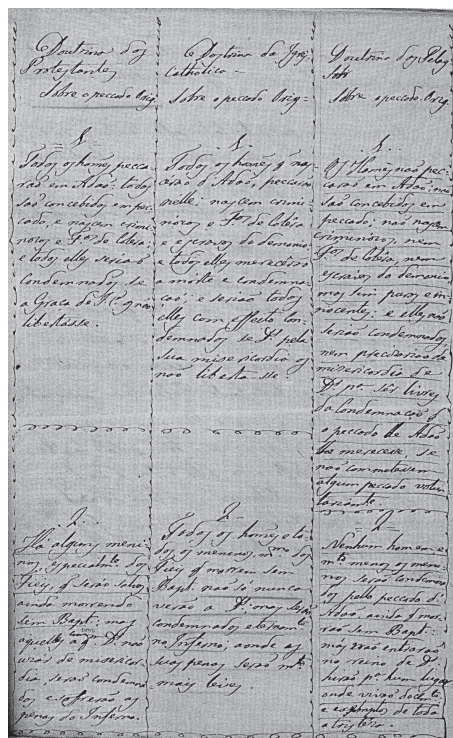 Doutrina dos
Protestantes
Sobre o peccado Orig.
1
Todos os homẽs pecca-
rão em Adão; todos
são concebidos em pec-
cado, e nascem crimi-
nosos e F.os de cólera:
e todos elles serião
condemnados, se
a Graça de J. C. os não
libertasse.
2.
Há alguns meni-
nos, especialm.te dos
Fieis, q̃ serão salvos
ainda morrendo
sem Bapt. mas
aquelles com q.m D.s não
uzar de misericor-
dia, serão condemna-
dos e sofrerão as
penas do Inferno.
Doutrina da Igrej.
Catholica -
Sobre o peccado Orig-
1.
Todos os homẽs q̃ nas-
cerão d'Adão, peccarão
nelle; nascem crimi-
nosos e F.os de cólera
e escravos do demonio
e todos elles merecerão
a morte e condemna-
ção; e serião todos
elles com effeito con-
demnados se D.s pela
sua misericordia os
não liberta-sse.
2
Todos os homẽs e to-
dos os meninos, m.mo dos
Fieis q̃ morrem sem
Bapt. não só nunca
verão a D.s mas serão
condemnados eternam.te
no Inferno, aonde as
suas penas serão m.to
mais leves.
Doutrina dos Pelag
Sobre o peccado Orig.
1.
Os Homẽs não pec-
carão em Adão; não
são concebidos em
peccado; não nascem
criminosos, nem
F.os de cólera, nem
escravos do demonio
mas sim puros e in-
nocentes; e elles não
serão condemnados,
nem precisarião de
misericordia de
D.s p.a ser livres
da condemnação q̃
o peccado de Adão
lhe merecesse, se
não commetessem
algum peccado volun-
tariamte
2
Nenhum homem, e
m.to menos os meni-
nos serão condemna-
dos pello peccado d'
Adão, ainda q̃ mor-
rão sem Bapt.
mas não entrarão
no reino de D.s
hirão p.a hum lugar
onde vivão docem.te
e exemptos de toda
a tristeza.